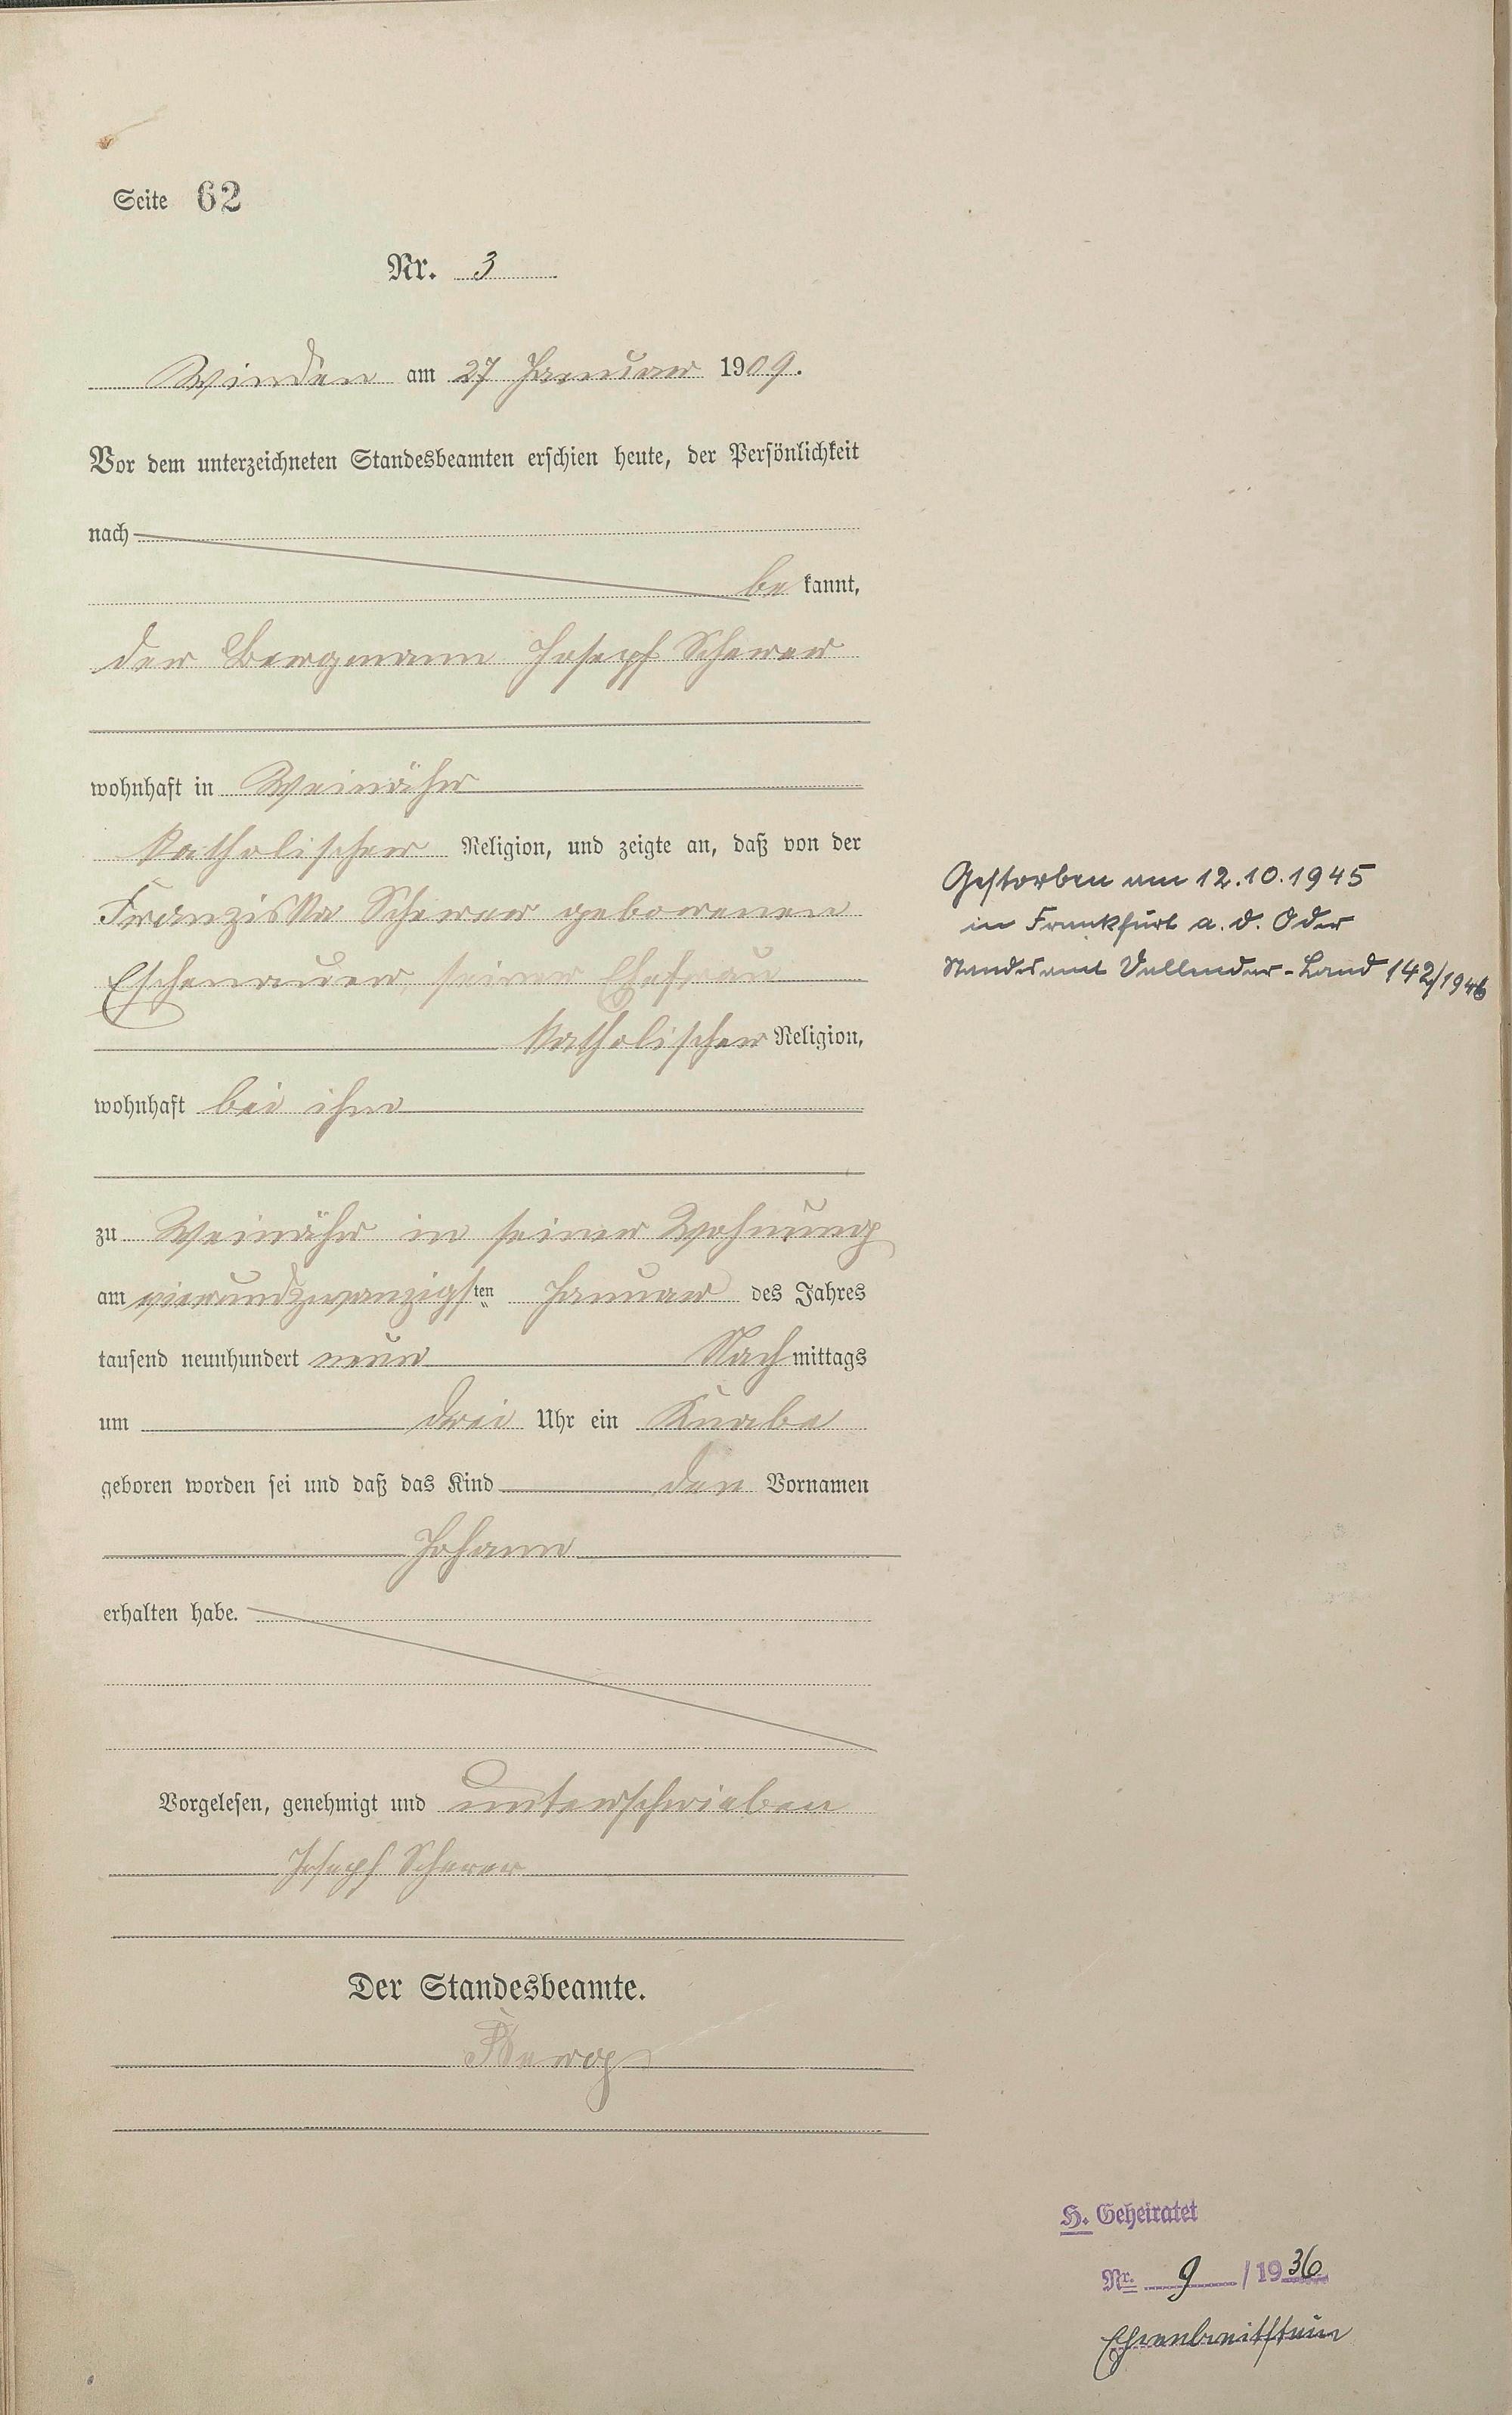 Seite 62
Nr. 3
Winden am 27 Januar 1909.
Vor dem unterzeichneten Standesbeamten erschien heute, der Persönlichkeit
nach
be kannt,
der Bergmann Joseph Scherer
wohnhaft in Weinähr
katholischer Religion, und zeigte an, daß von der
Franziska Scherer geborenen
Eschenauer, seiner Ehefrau
katholischer Religion,
wohnhaft bei ihm
zu Weinähr in seiner Wohnung
am vierundzwanzigsten Januar des Jahres
tausend neunhundert neun Nachmittags
um drei Uhr ein Knabe
geboren worden sei und daß das Kind den Vornamen
Johann
erhalten habe.
Vorgelesen, genehmigt und unterschrieben
Joseph Scherer
Der Standesbeamte.
Gestorben am 12.10.1945
in Frankfurt a. d. Oder
Standesamt Vallendar-Land 142/1946
H. Geheiratet
Nr. 9 / 1936
Ehrenbreitstein